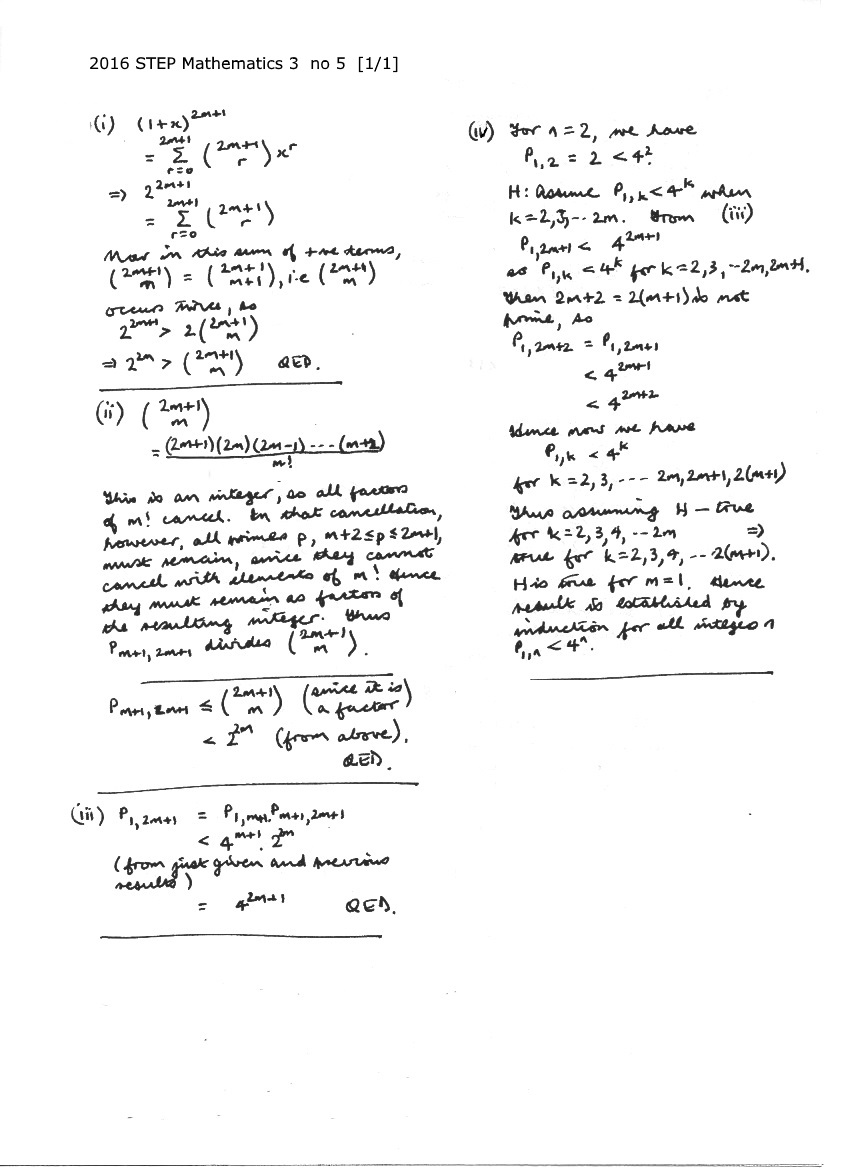 2016 STEP Mathematics 3 no 5 [1/1]
(i) (1+x)^{2m+1}
= \sum_{r=0}^{2m+1} \binom{2m+1}{r} x^r
⇒ 2^{2m+1}
= \sum_{r=0}^{2m+1} \binom{2m+1}{r}
Now in this sum of +ve terms,
\binom{2m+1}{m} = \binom{2m+1}{m+1}, i.e \binom{2m+1}{m}
occurs twice, so
2^{2m+1} > 2\binom{2m+1}{m}
⇒ 2^{2m} > \binom{2m+1}{m} QED.
(ii) \binom{2m+1}{m}
= \frac{(2m+1)(2m)(2m-1)---(m+2)}{m!}
This is an integer, so all factors
of m! cancel. In that cancellation,
however, all primes p, m+2≤p≤2m+1,
must remain, since they cannot
cancel with elements of m! Hence
they must remain as factors of
the resulting integer. Thus
P_{m+1,2m+1} divides \binom{2m+1}{m}.
P_{m+1,2m+1} ≤ \binom{2m+1}{m} (since it is
a factor)
< 2^{2m} (from above).
QED.
(iii) P_{1,2m+1} = P_{1,m+1}.P_{m+1,2m+1}
< 4^{m+1}.2^{2m}
(from just given and previous
results)
= 4^{2m+1} QED.
(iv) For n=2, we have
P_{1,2} = 2 < 4^2.
H: Assume P_{1,k} < 4^k when
k=2,3,-- 2m. From (iii)
P_{1,2m+1} < 4^{2m+1}
so P_{1,k} < 4^k for k=2,3,--2m,2m+1.
Then 2m+2 = 2(m+1) is not
prime, so
P_{1,2m+2} = P_{1,2m+1}
< 4^{2m+1}
< 4^{2m+2}
Hence now we have
P_{1,k} < 4^k
for k=2,3,--- 2m,2m+1,2(m+1)
Thus assuming H – true
for k=2,3,4,--2m ⇒
true for k=2,3,4,--2(m+1).
H is true for m=1. Hence
result is established by
induction for all integers n
P_{1,n} < 4^n.